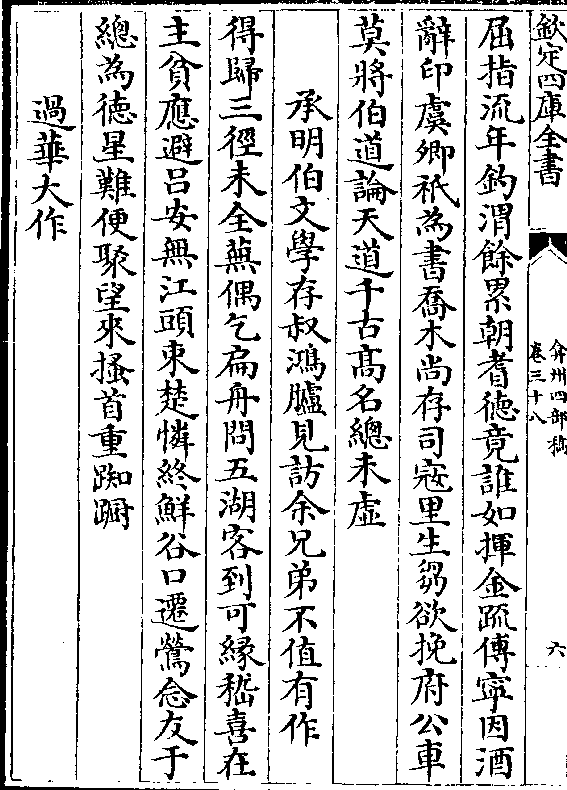 欽定四庫全書
弇州四部稿
卷三十八
六
屈指流年釣渭餘累朝耆德竟誰如揮金疏傅寧因酒
辭印虞卿祇為書喬木尚存司寇里生芻欲挽府公車
莫將伯道論天道千古髙名總未虛
承明伯文學存叔鴻臚見訪余兄弟不值有作
得歸三徑未全蕪偶乞扁舟問五湖客到可緣嵇喜在
主貧應避呂安無江頭束楚憐終鮮谷口遷鶯念友于
總為徳星難便聚望來搔首重踟蹰
過華大作